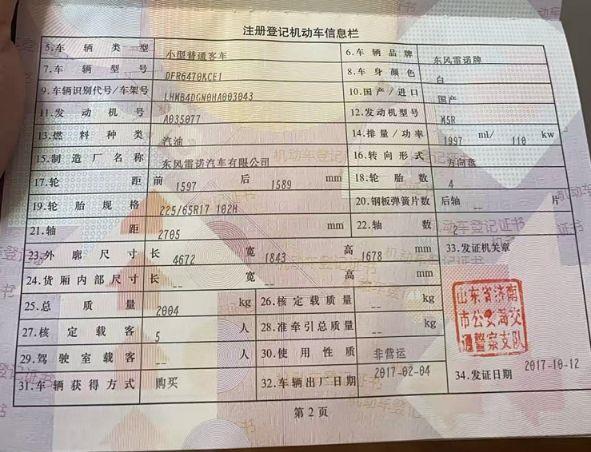 注册登记机动车信息栏
5.车辆类型 小型普通客车 6.车辆品牌 东风雷诺牌
7.车辆型号 DFR6470KCE1 8.车身颜色 白
9.车辆识别代号/车架号 LHMB4DGN0HA003043 10.国产/进口 国产
11.发动机号 A035077 12.发动机型号 M5R
13.燃料种类 汽油 14.排量/功率 1997 ml/ 110 kw
15.制造厂名称 东风雷诺汽车有限公司 16.转向形式 方向盘
17.轮距 前 1597 后 1589 mm 18.轮胎数 4
19.轮胎规格 225/65R17 102H 20.钢板弹簧片数 后轴 -- 片
21.轴距 2705 mm 22.轴数 2
23.外廓尺寸 长 4672 宽 1843 高 1678 mm 33.发证机关章
24.货厢内部尺寸 长 -- 宽 -- 高 -- mm
25.总质量 2004 kg 26.核定载质量 -- kg
27.核定载客 5 人 28.准牵引总质量 -- kg
29.驾驶室载客 -- 人 30.使用性质 非营运
31.车辆获得方式 购买 32.车辆出厂日期 2017-02-04 34.发证日期 2017-10-12
山东省济南
市公安局交
通警察支队
第2页